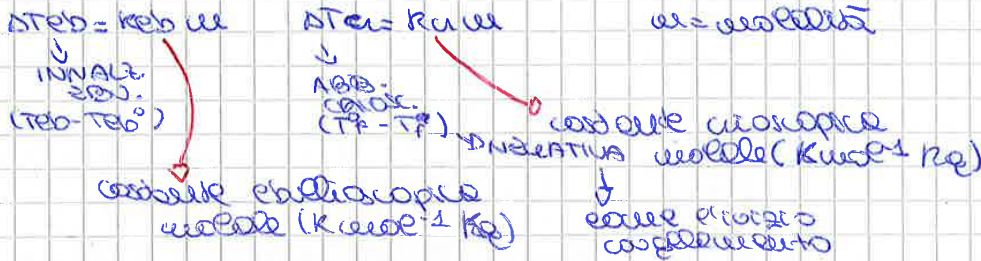 ΔTeb = Keb m
ΔTcr = Kcr m
m = molalità
INNALZ.
EBU.
(Teb - Teb°)
ABB.
CRIOSC.
(T°f - Tf)
NEGATIVA
costante crioscopica
molale (K mol⁻¹ Kg)
costante ebullioscopica
molale (K mol⁻¹ Kg)
congelamento